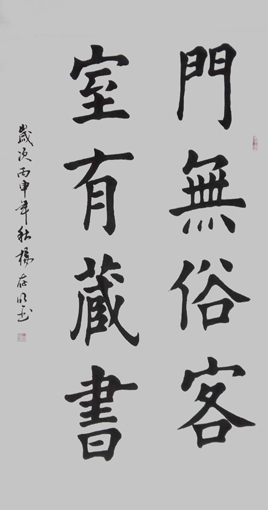 門無俗客
室有藏書
歲次丙申年秋楊